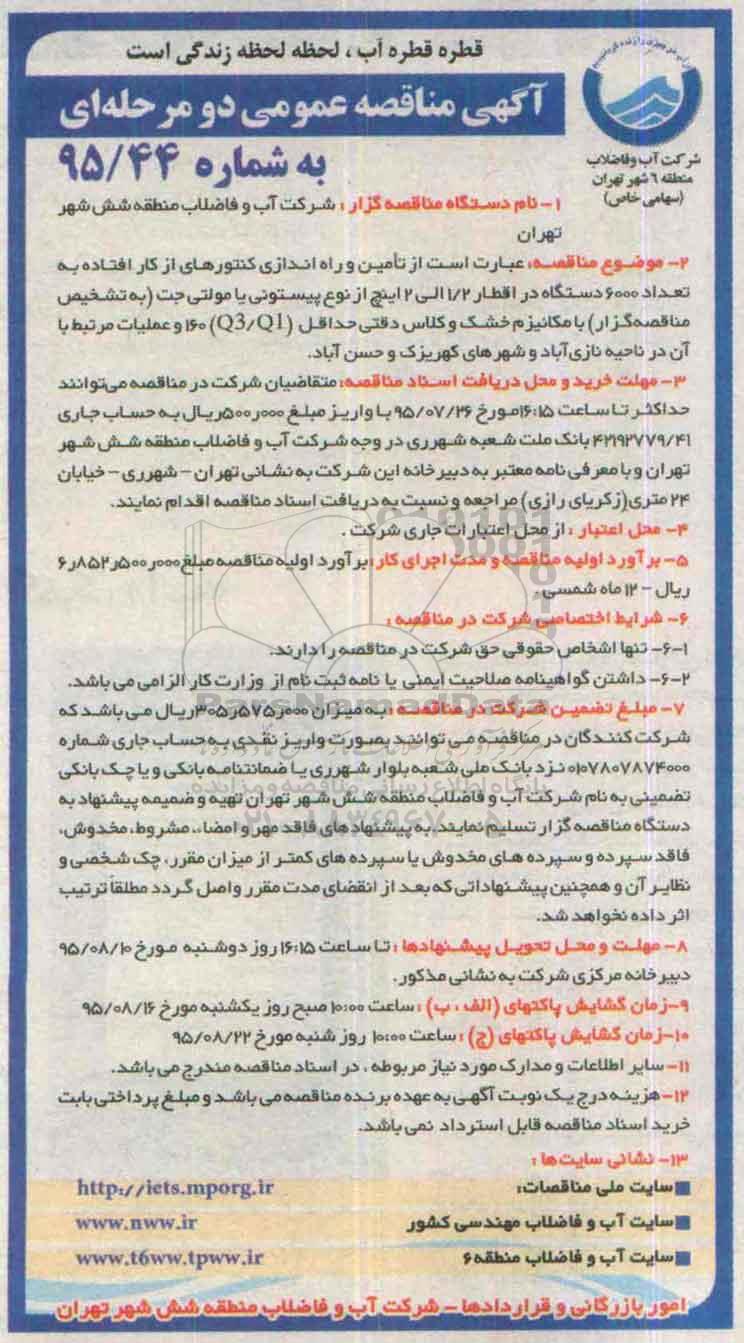 قطره قطره آب ، لحظه لحظه زندگی است
آگهی مناقصه عمومی دو مرحله‌ای
به شماره ۹۵/۴۴
شرکت آب وفاضلاب
منطقه ۶ شهر تهران
(سهامی خاص)
۱- نام دستگاه مناقصه گزار : شرکت آب و فاضلاب منطقه شش شهر
تهران
۲- موضوع مناقصه: عبارت است از تأمین و راه اندازی کنتورهای از کار افتاده به
تعداد ۶۰۰۰ دستگاه در اقطار ۱/۲ الی ۲ اینچ از نوع پیستونی یا مولتی جت (به تشخیص
مناقصه‌گزار) با مکانیزم خشک و کلاس دقتی حداقل (Q3/Q1) ۱۶۰ و عملیات مرتبط با
آن در ناحیه نازی‌آباد و شهرهای کهریزک و حسن آباد.
۳- مهلت خرید و محل دریافت اسناد مناقصه: متقاضیان شرکت در مناقصه می‌توانند
حداکثر تا ساعت ۱۶:۱۵ مورخ ۹۵/۰۷/۲۶ با واریز مبلغ ۵۰۰ر۰۰۰ ریال به حساب جاری
۴۲۱۹۲۷۷۹/۴۱ بانک ملت شعبه شهرری در وجه شرکت آب و فاضلاب منطقه شش شهر
تهران و با معرفی نامه معتبر به دبیرخانه این شرکت به نشانی تهران - شهرری - خیابان
۲۴ متری(زکریای رازی) مراجعه و نسبت به دریافت اسناد مناقصه اقدام نمایند.
۴- محل اعتبار : از محل اعتبارات جاری شرکت .
۵- برآورد اولیه مناقصه و مدت اجرای کار: برآورد اولیه مناقصه مبلغ ۶ر۸۵۲ر۵۰۰ر۰۰۰
ریال - ۱۲ ماه شمسی .
۶- شرایط اختصاصی شرکت در مناقصه :
۶-۱- تنها اشخاص حقوقی حق شرکت در مناقصه را دارند.
۶-۲- داشتن گواهینامه صلاحیت ایمنی یا نامه ثبت نام از وزارت کار الزامی می باشد.
۷- مبلغ تضمین شرکت در مناقصه : به میزان ۳۰۵ر۵۷۵ر۰۰۰ ریال می باشد که
شرکت کنندگان در مناقصه می توانند بصورت واریز نقدی به حساب جاری شماره
۰۱۰۷۸۰۷۸۷۴۰۰۰ نزد بانک ملی شعبه بلوار شهرری یا ضمانتنامه بانکی و یا چک بانکی
تضمینی به نام شرکت آب و فاضلاب منطقه شش شهر تهران تهیه و ضمیمه پیشنهاد به
دستگاه مناقصه گزار تسلیم نمایند. به پیشنهادهای فاقد مهر و امضاء، مشروط، مخدوش،
فاقد سپرده و سپرده های مخدوش یا سپرده های کمتر از میزان مقرر، چک شخصی و
نظایر آن و همچنین پیشنهاداتی که بعد از انقضای مدت مقرر واصل گردد مطلقاً ترتیب
اثر داده نخواهد شد.
۸- مهلت و محل تحویل پیشنهادها : تا ساعت ۱۶:۱۵ روز دوشنبه مورخ ۹۵/۰۸/۱۰
دبیرخانه مرکزی شرکت به نشانی مذکور.
۹-زمان گشایش پاکتهای (الف ، ب) : ساعت ۱۰:۰۰ صبح روز یکشنبه مورخ ۹۵/۰۸/۱۶
۱۰-زمان گشایش پاکتهای (ج) : ساعت ۱۰:۰۰ روز شنبه مورخ ۹۵/۰۸/۲۲
۱۱-سایر اطلاعات و مدارک مورد نیاز مربوطه ، در اسناد مناقصه مندرج می باشد.
۱۲-هزینه درج یک نوبت آگهی به عهده برنده مناقصه می باشد و مبلغ پرداختی بابت
خرید اسناد مناقصه قابل استرداد نمی باشد.
۱۳- نشانی سایت‌ها :
سایت ملی مناقصات: http://iets.mporg.ir
سایت آب و فاضلاب مهندسی کشور www.nww.ir
سایت آب و فاضلاب منطقه۶ www.t6ww.tpww.ir
امور بازرگانی و قراردادها - شرکت آب و فاضلاب منطقه شش شهر تهران
ParsNamadData
پایگاه اطلاع رسانی مناقصه و مزایده